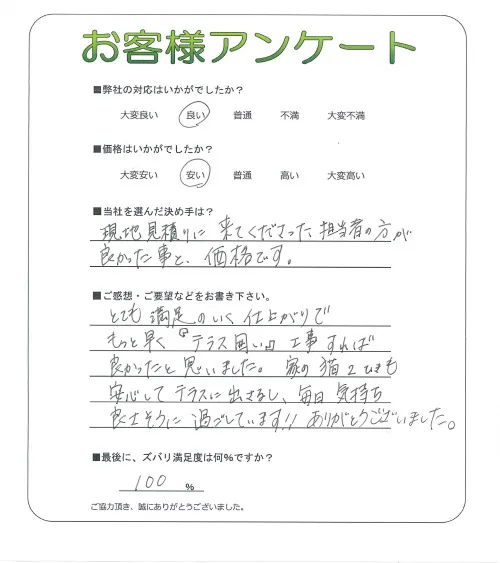 お客様アンケート
■弊社の対応はいかがでしたか？
大変良い 良い 普通 不満 大変不満
■価格はいかがでしたか？
大変安い 安い 普通 高い 大変高い
■当社を選んだ決め手は？
現地見積りに来てくださった担当者の方が
良かった事と、価格です。
■ご感想・ご要望などをお書き下さい。
とても満足のいく仕上がりで
もっと早く『テラス囲い』工事すれば
良かったと思いました。家の猫2ひきも
安心してテラスに出せるし、毎日気持ち
良さそうに過ごしています!! ありがとうございました。
■最後に、ズバリ満足度は何％ですか？
100 %
ご協力頂き、誠にありがとうございました。